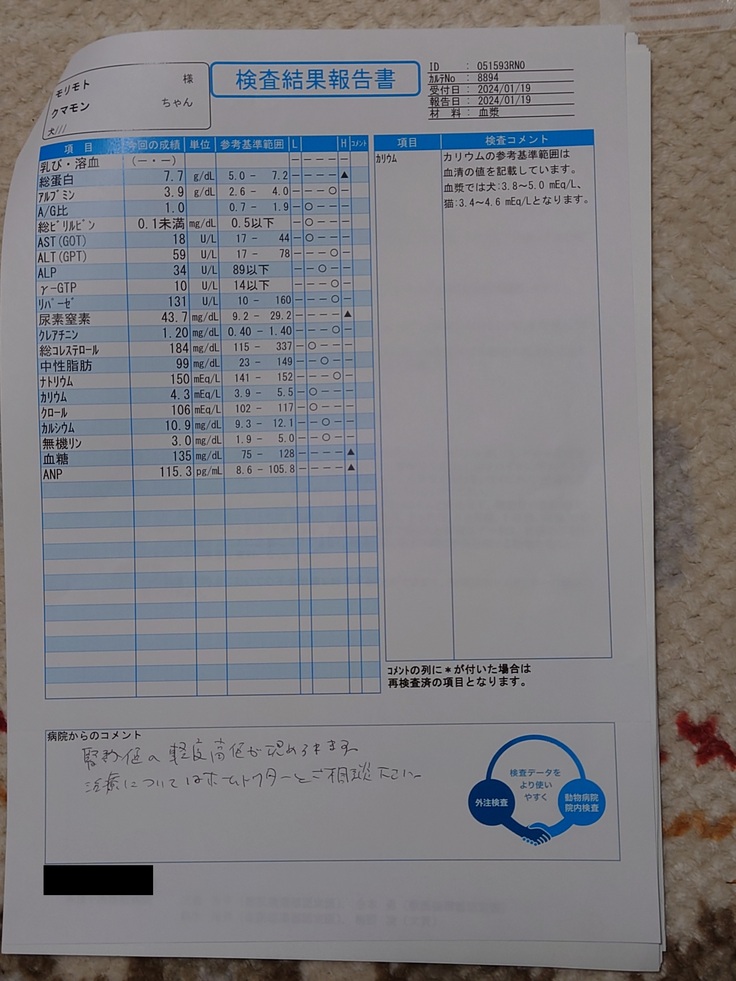 モリモト 様
クマモン ちゃん
犬///
検査結果報告書
ID : 051593RN0
ｶﾙﾃNo : 8894
受付日 : 2024/01/19
報告日 : 2024/01/19
材 料 : 血漿
項 目 今回の成績 単位 参考基準範囲 L H ｺﾒﾝﾄ
乳び・溶血 (－・－) －－－－－
総蛋白 7.7 g/dL 5.0 - 7.2 －－－－▲
ｱﾙﾌﾞﾐﾝ 3.9 g/dL 2.6 - 4.0 －－－○－
A/G比 1.0 0.7 - 1.9 －○－－－
総ﾋﾞﾘﾙﾋﾞﾝ 0.1未満 mg/dL 0.5以下 －○－－－
AST(GOT) 18 U/L 17 - 44 －○－－－
ALT(GPT) 59 U/L 17 - 78 －－－○－
ALP 34 U/L 89以下 －－○－－
γ-GTP 10 U/L 14以下 －－－○－
ﾘﾊﾟｰｾﾞ 131 U/L 10 - 160 －－－○－
尿素窒素 43.7 mg/dL 9.2 - 29.2 －－－－▲
ｸﾚｱﾁﾆﾝ 1.20 mg/dL 0.40 - 1.40 －－－○－
総ｺﾚｽﾃﾛｰﾙ 184 mg/dL 115 - 337 －○－－－
中性脂肪 99 mg/dL 23 - 149 －－○－－
ﾅﾄﾘｳﾑ 150 mEq/L 141 - 152 －－－○－
ｶﾘｳﾑ 4.3 mEq/L 3.9 - 5.5 －○－－－
ｸﾛｰﾙ 106 mEq/L 102 - 117 －○－－－
ｶﾙｼｳﾑ 10.9 mg/dL 9.3 - 12.1 －－○－－
無機ﾘﾝ 3.0 mg/dL 1.9 - 5.0 －－○－－
血糖 135 mg/dL 75 - 128 －－－－▲
ANP 115.3 pg/mL 8.6 - 105.8 －－－－▲
項目 検査コメント
ｶﾘｳﾑ カリウムの参考基準範囲は
血清の値を記載しています。
血漿では犬:3.8～5.0 mEq/L、
猫:3.4～4.6 mEq/Lとなります。
ｺﾒﾝﾄの列に＊が付いた場合は
再検査済の項目となります。
病院からのコメント
腎数値の軽度高値が認められます。
治療についてはホームドクターとご相談下さい
検査データを
より使い
やすく
外注検査
動物病院
院内検査